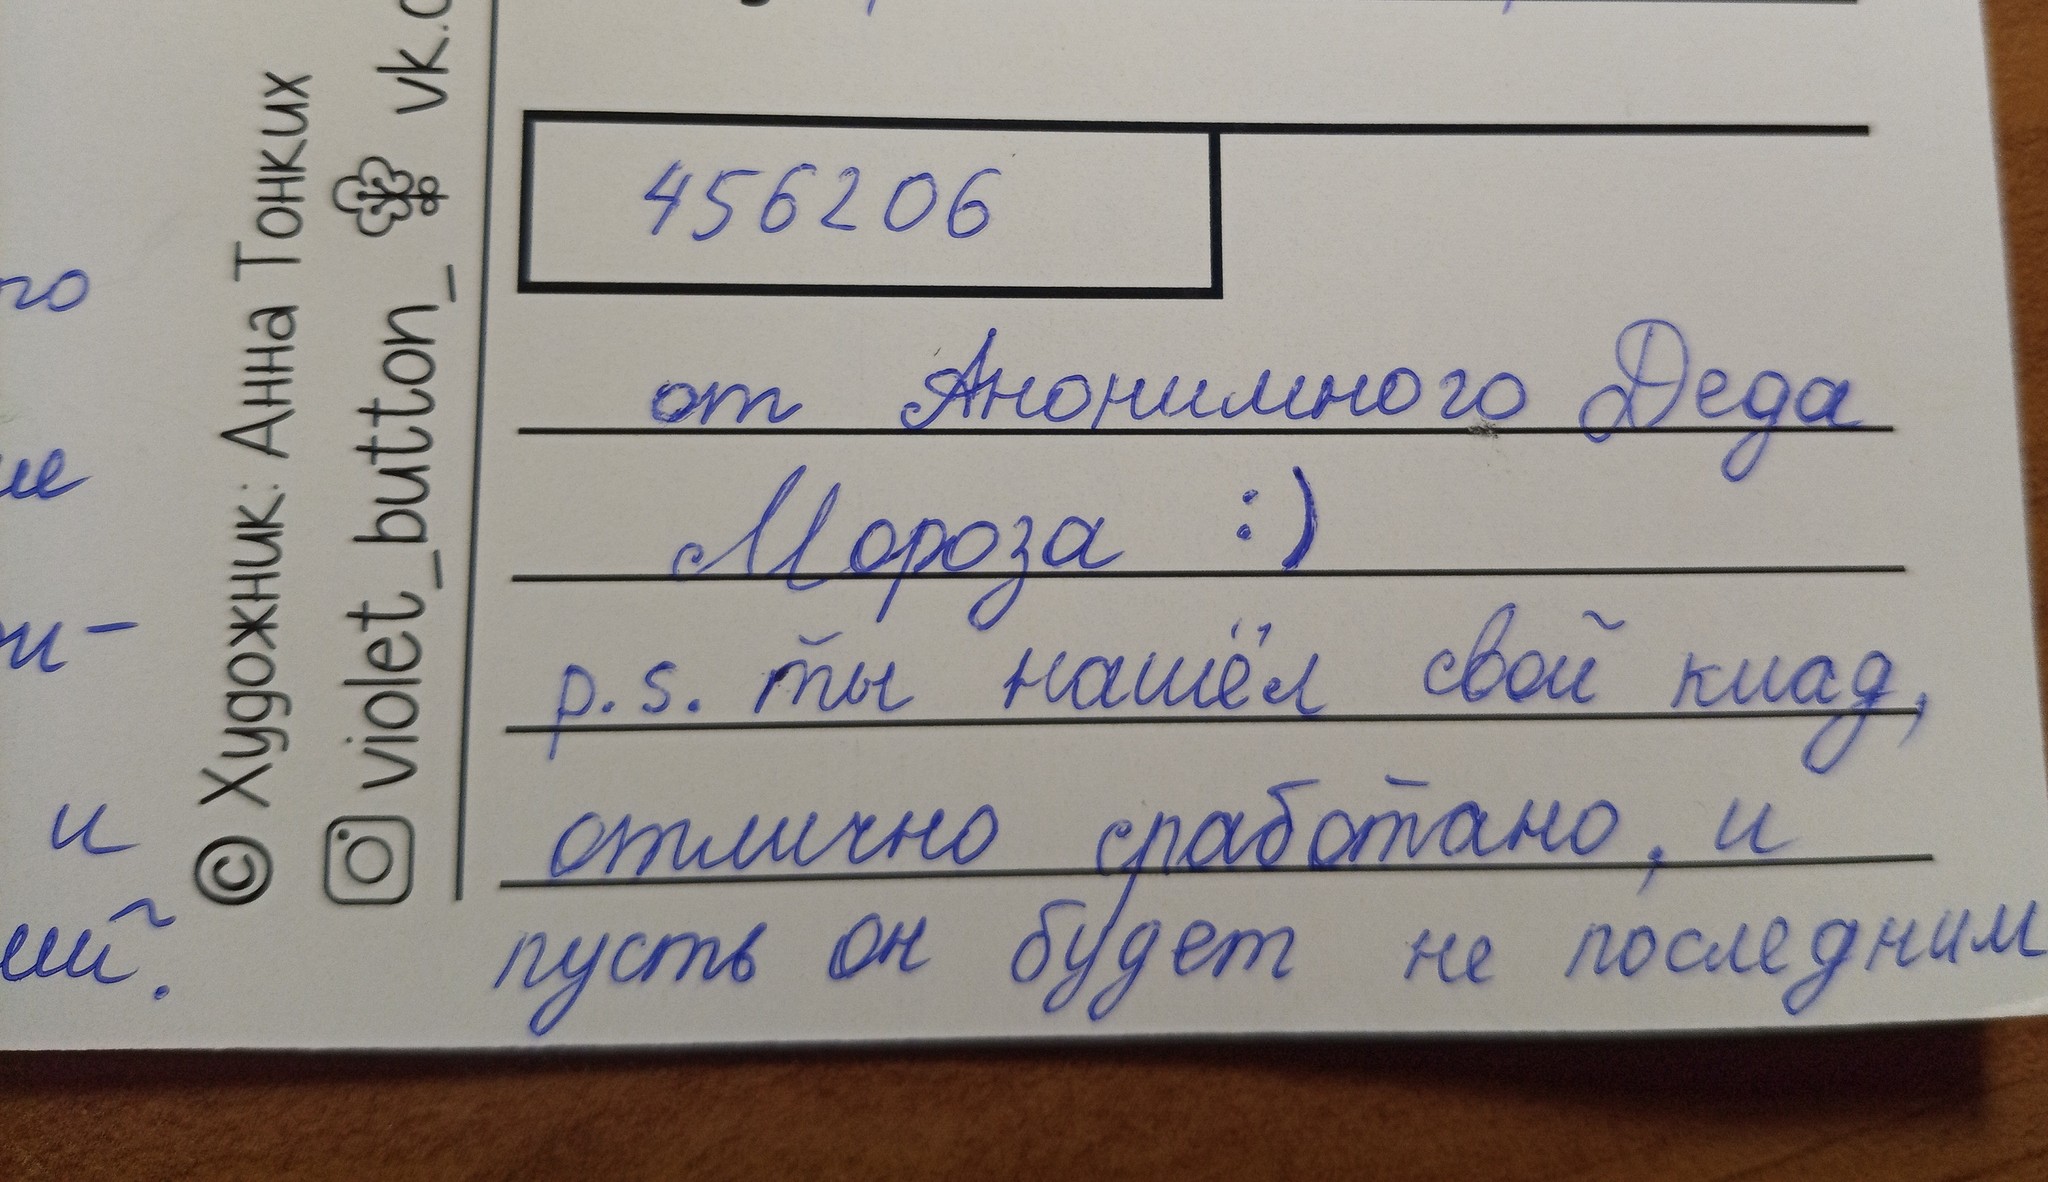 го
ие
и-
и
ший.
© Художник: Анна Тонких
violet_button_ vk.c
456206
от Анонимного Деда
Мороза :)
p.s. ты нашёл свой клад,
отлично сработано, и
пусть он будет не последним